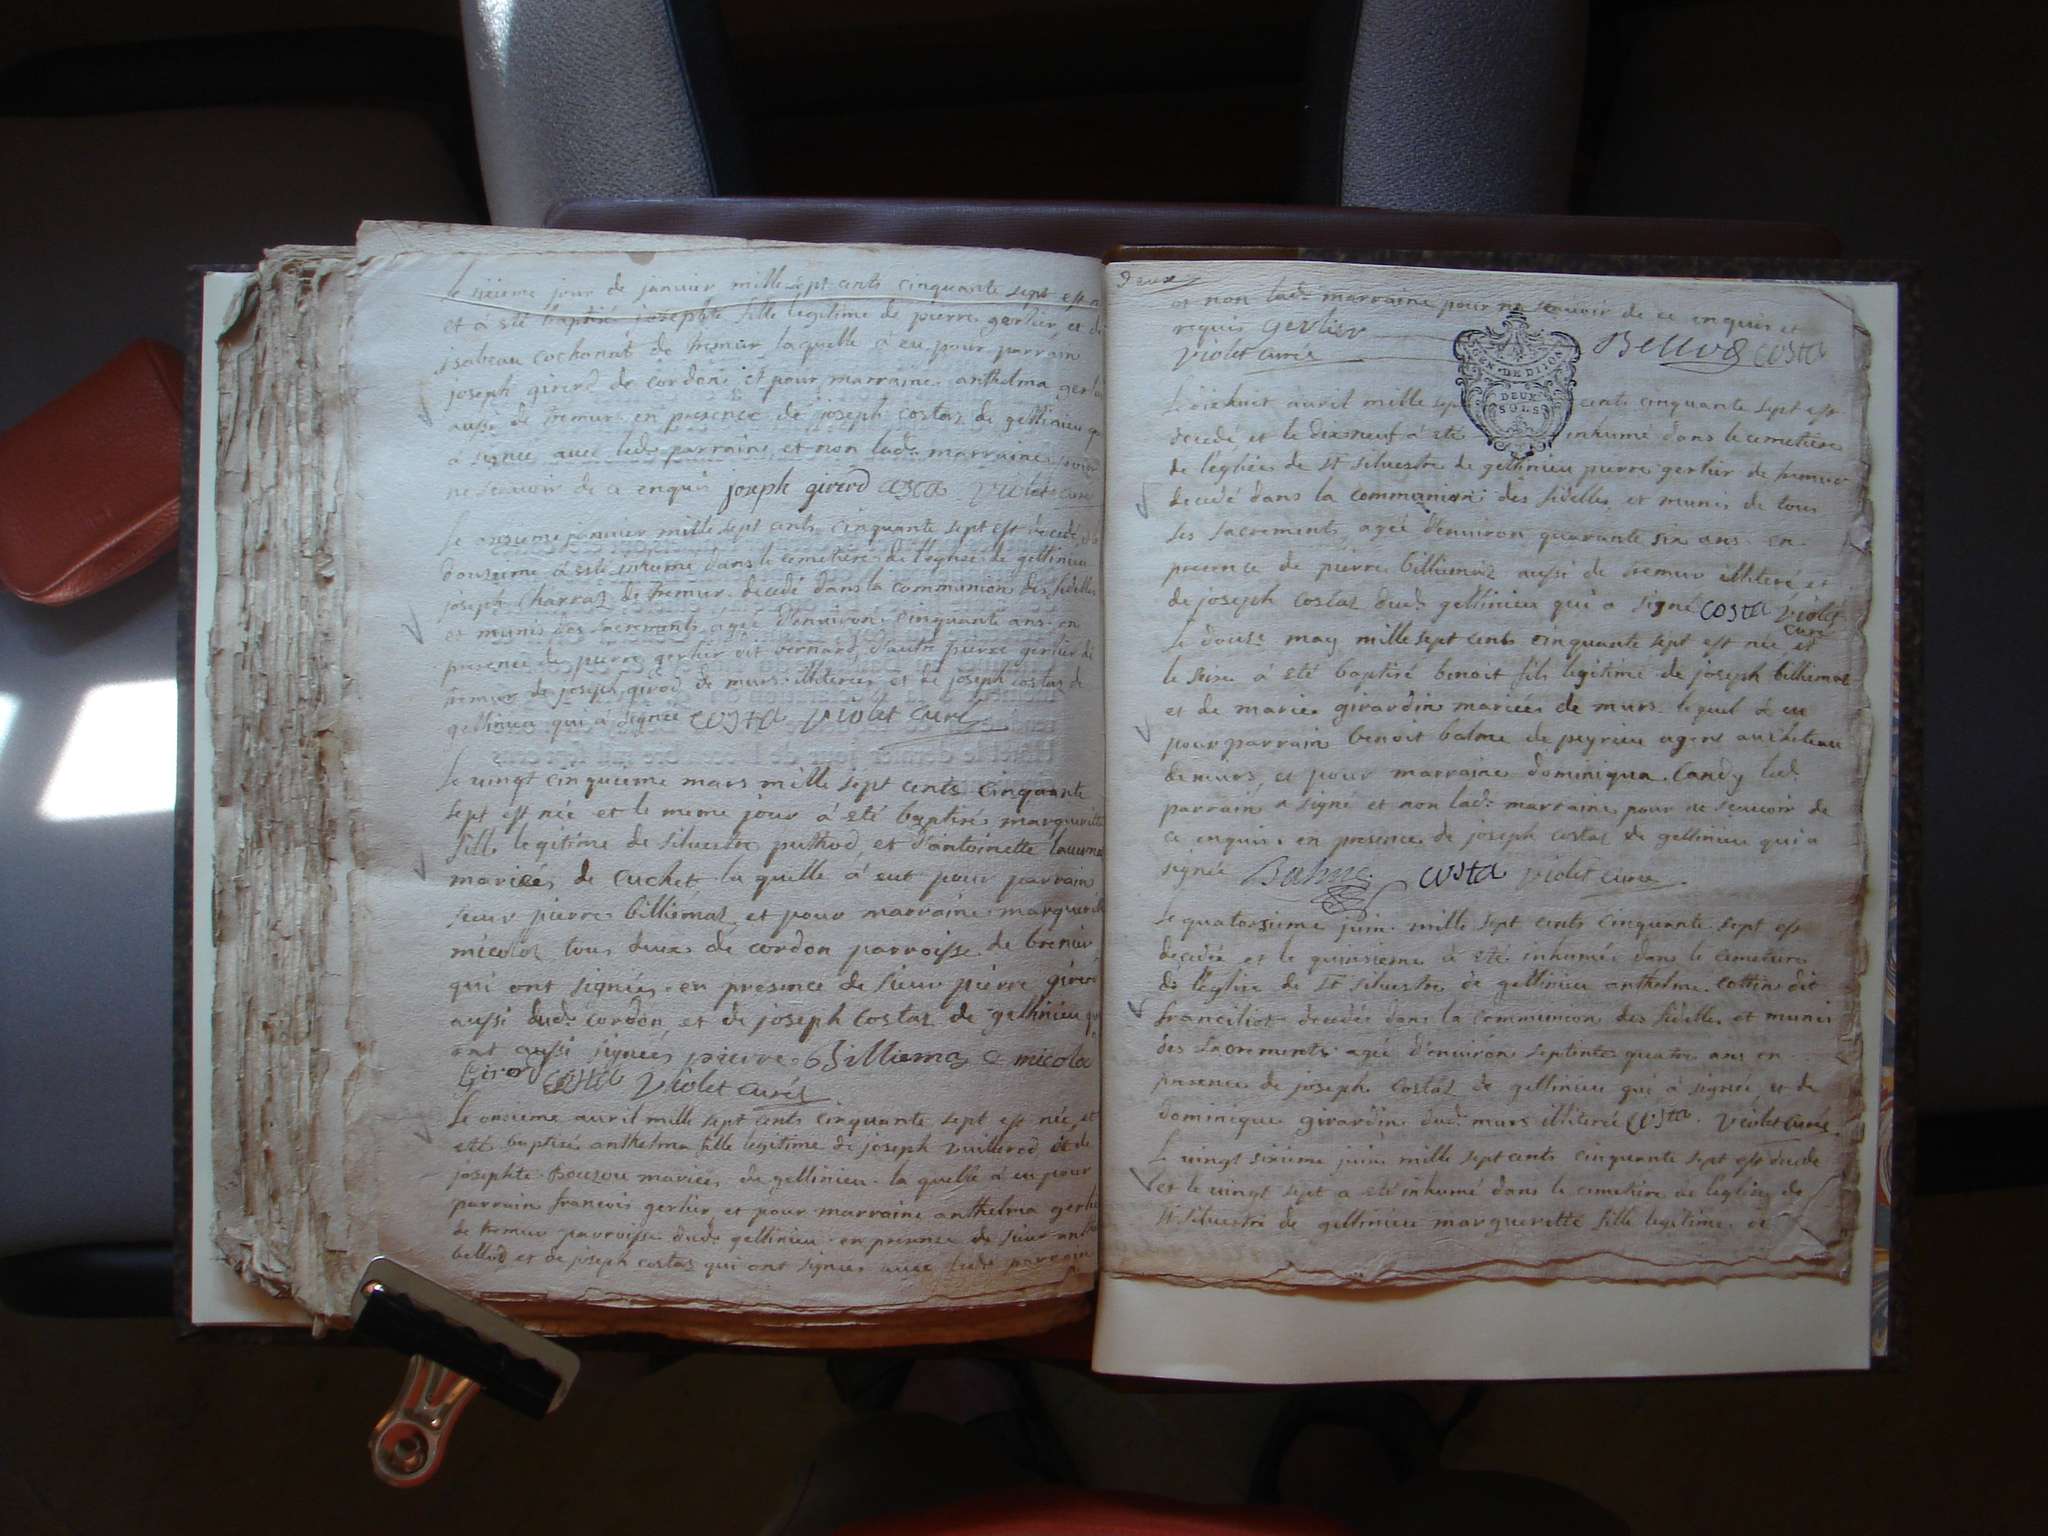 le sixieme jour de janvier mille sept cents cinquante sept est
et à été baptisé josephte fille legitime de pierre gerlier et
jsabeau cochonat de tremur laquelle à eu pour parrain
joseph girerd de cordon et pour marraine anthelma
aussi de tremurs en presence de joseph costaz de gellinieu
à signée avec led. parrain et non lad. marraine pour
ne scavoir de ce enquis joseph girerd costa violet curé
Le onzieme janvier mille sept cents cinquante sept est decedé
douzeime à esté inhumé dans le cemetiere de l'eglise de gellinieu
joseph Charraz de tremur decedé dans la communion des fidelles
et munis des sacrements agée d'environ cinquante ans en
presence de pierre gerlier dit bernard, d'autre pierre gerlier de
tremur de joseph girod de murs illiterés et de joseph costaz de
gellinieu qui à signée costa violet curé
Le vingt cinquieme mars mille sept cents cinquante
sept est née et le meme jour à été baptisée margueritte
fille legitime de silvestre puthod et d'antoinette
mariés de cuchet, la quelle à eut pour parrain
sieur pierre billiémaz et pour marraine marguerite
micoloz tous deux de cordon parroisse de brenier
qui ont signées en presence de sieur pierre girerd
aussi dud. cordon et de joseph costaz de gellinieu qui
ont aussi signées pierre billiema micola
Girod costa violet curé
Le onzieme avril mille sept cents cinquante sept est née, et
été baptisée anthelma fille legitime de joseph vuillerod et de
josephte Bouzou mariées de gellinieu la quelle à eu pour
parrain françois gerlier et pour marraine anthelma
de tremur parroisse dud. gellinieu en presence de sieur
bellod et de joseph costaz qui ont signés avec led. parrain
Deux
et non lad. marraine pour ne scavoir de ce enquis et
requis gerlier Bellod costa
violet curé
GEN. DE DIJON
DEUX
SOLS
Le dixhuit avril mille sept cents cinquante sept est
decedé et le dixneuf à été inhumé dans le cemetiere
de l'eglise de St silvestre de gellinieu pierre gerlier de tremur
decedé dans la communion des fidelles et munis de tous
ses sacrements agée d'environ quarante six ans en
presence de pierre billiemaz aussi de tremur illiteré et
de joseph costaz dud. gellinieu qui a signé costa violet
curé
Le douze may mille sept cents cinquante sept est née et
le seize à été baptisé benoit fils legitime de joseph billiemaz
et de marie girardin mariées de murs lequel à eu
pour parrain benoit balme de peyrieu agent au chateau
de murs et pour marraine dominiqua Candy led.
parrain a signé et non lad. marraine pour ne scavoir de
ce enquis en presence de joseph costaz de gellinieu qui a
signée Balme costa violet curé
Le quatorzieme juin mille sept cents cinquante sept est
decedée et le quinsieme à été inhumée dans le cimetiere
de l'eglise de St silvestre de gellinieu anthelme cottin dit
franciliot decedée dans la communion des fidelles et munis
des sacrements agée d'environ septente quatre ans en
presence de joseph costaz de gellinieu qui à signée et de
dominique girardin dud. murs illiterée costa violet curé
Le vingt sixieme juin mille sept cents cinquante sept est decede
et le vingt sept a été inhumé dans le cimetiere de l'eglise de
St silvestre de gellinieu marguerette fille legitime de